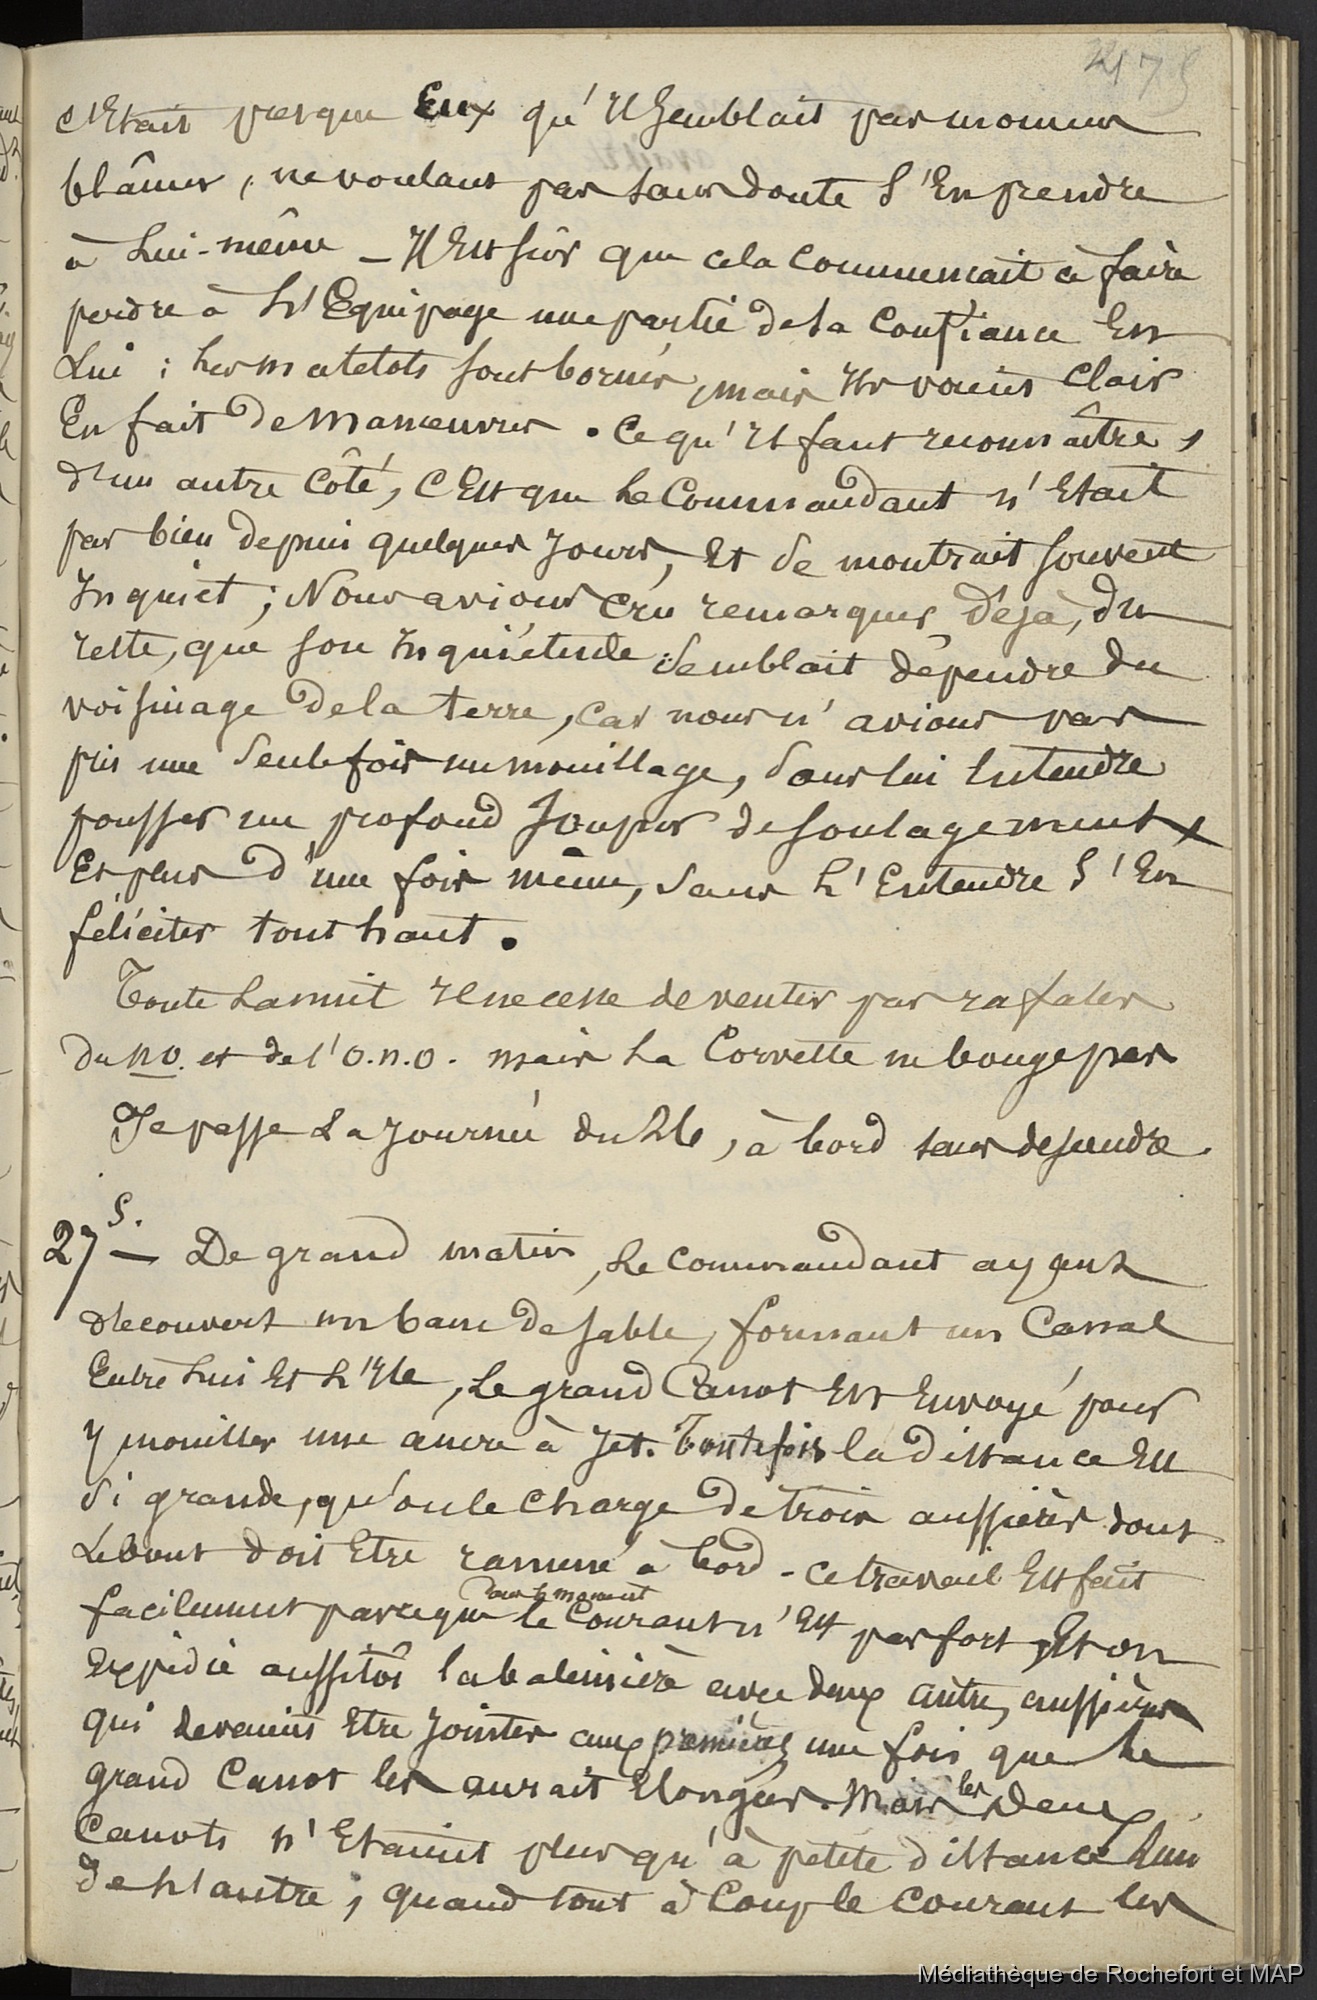 c'Etait presque Eux qu'Il Semblait par moment
blâmer, ne voulant pas sans doute S'En prendre
à Lui-même _ Il Est sûr que cela Commençait à faire
perdre à L'Equipage une partie de la Confiance En
Lui ; Les matelots sont bornés, mais Ils voient Clair
En fait de Manœuvres . Ce qu'Il faut reconnaître,
d'un autre Côté, C'Est que Le Commandant n'Etait
pas bien depuis quelques Jours, Et Se montrait souvent
Inquiet ; Nous avions Cru remarquer déjà, du
reste, que son Inquiétude Semblait dépendre du
voisinage de la terre, Car nous n'avions pas
pris une Seule fois un mouillage, Sans lui Entendre
pousser un profond Soupir de soulagement
Et plus d'une fois même, Sans L'Entendre S'En
féliciter tout haut.
Toute La nuit Il ne cesse de venter par rafales
du NO. et de l'O.N.O. mais La Corvette ne bouge pas
Je passe La Journée du 26, à bord sans descendre.
27 S. — De grand matin, Le Commandant ayant
découvert un banc de sable, formant un Canal
Entre Lui Et L'Ile, Le grand Canot Est Envoyé pour
y mouiller une ancre à Jet. Toutefois la distance Est
Si grande, qu'on le Charge de trois aussières dont
Le bout doit Etre ramené à bord - ce travail Est fait
facilement parceque pour le moment le Courant n'Est pas fort, Et on
Expédie aussitôt la baleinière avec deux autres aussières
qui devaient Etre Jointes aux premières, une fois que Le
grand Canot les aurait Elongées. Mais les deux
Canots n'Etaient plus qu'à petite distance L'un
de L'autre, quand tout à Coup le Courant les